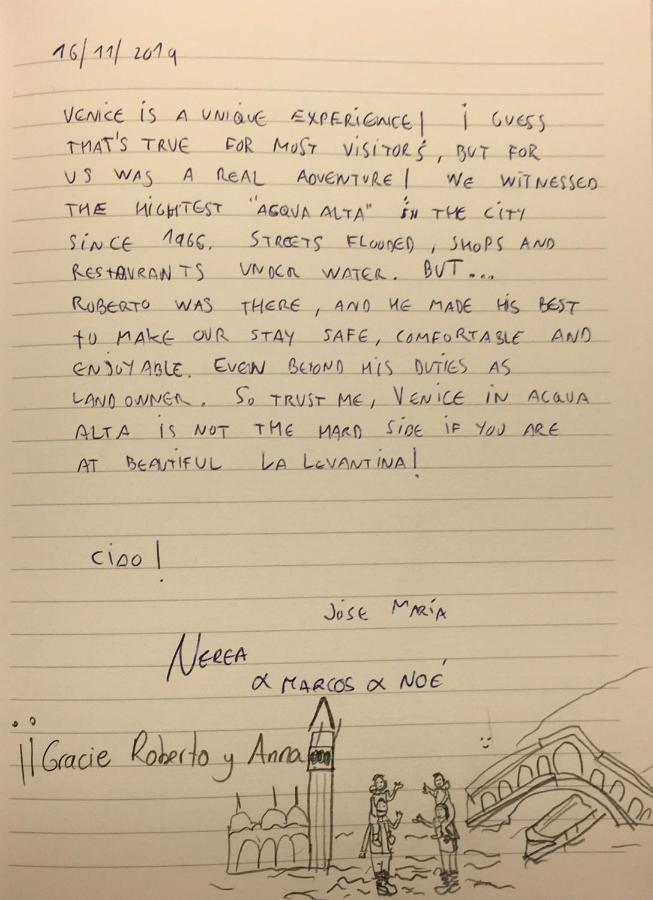 16/11/2019
VENICE IS A UNIQUE EXPERIENCE! I GUESS
THAT'S TRUE FOR MOST VISITORS, BUT FOR
US WAS A REAL ADVENTURE! WE WITNESSED
THE HIGHTEST "ACQUA ALTA" IN THE CITY
SINCE 1966. STREETS FLOODED, SHOPS AND
RESTAURANTS UNDER WATER. BUT...
ROBERTO WAS THERE, AND HE MADE HIS BEST
TO MAKE OUR STAY SAFE, COMFORTABLE AND
ENJOYABLE. EVEN BEYOND HIS DUTIES AS
LANDOWNER. SO TRUST ME, VENICE IN ACQUA
ALTA IS NOT THE HARD SIDE IF YOU ARE
AT BEAUTIFUL LA LEVANTINA!
CIAO!
JOSE MARÍA
NEREA
& MARCOS & NOÉ
¡¡Gracie Roberto y Anna